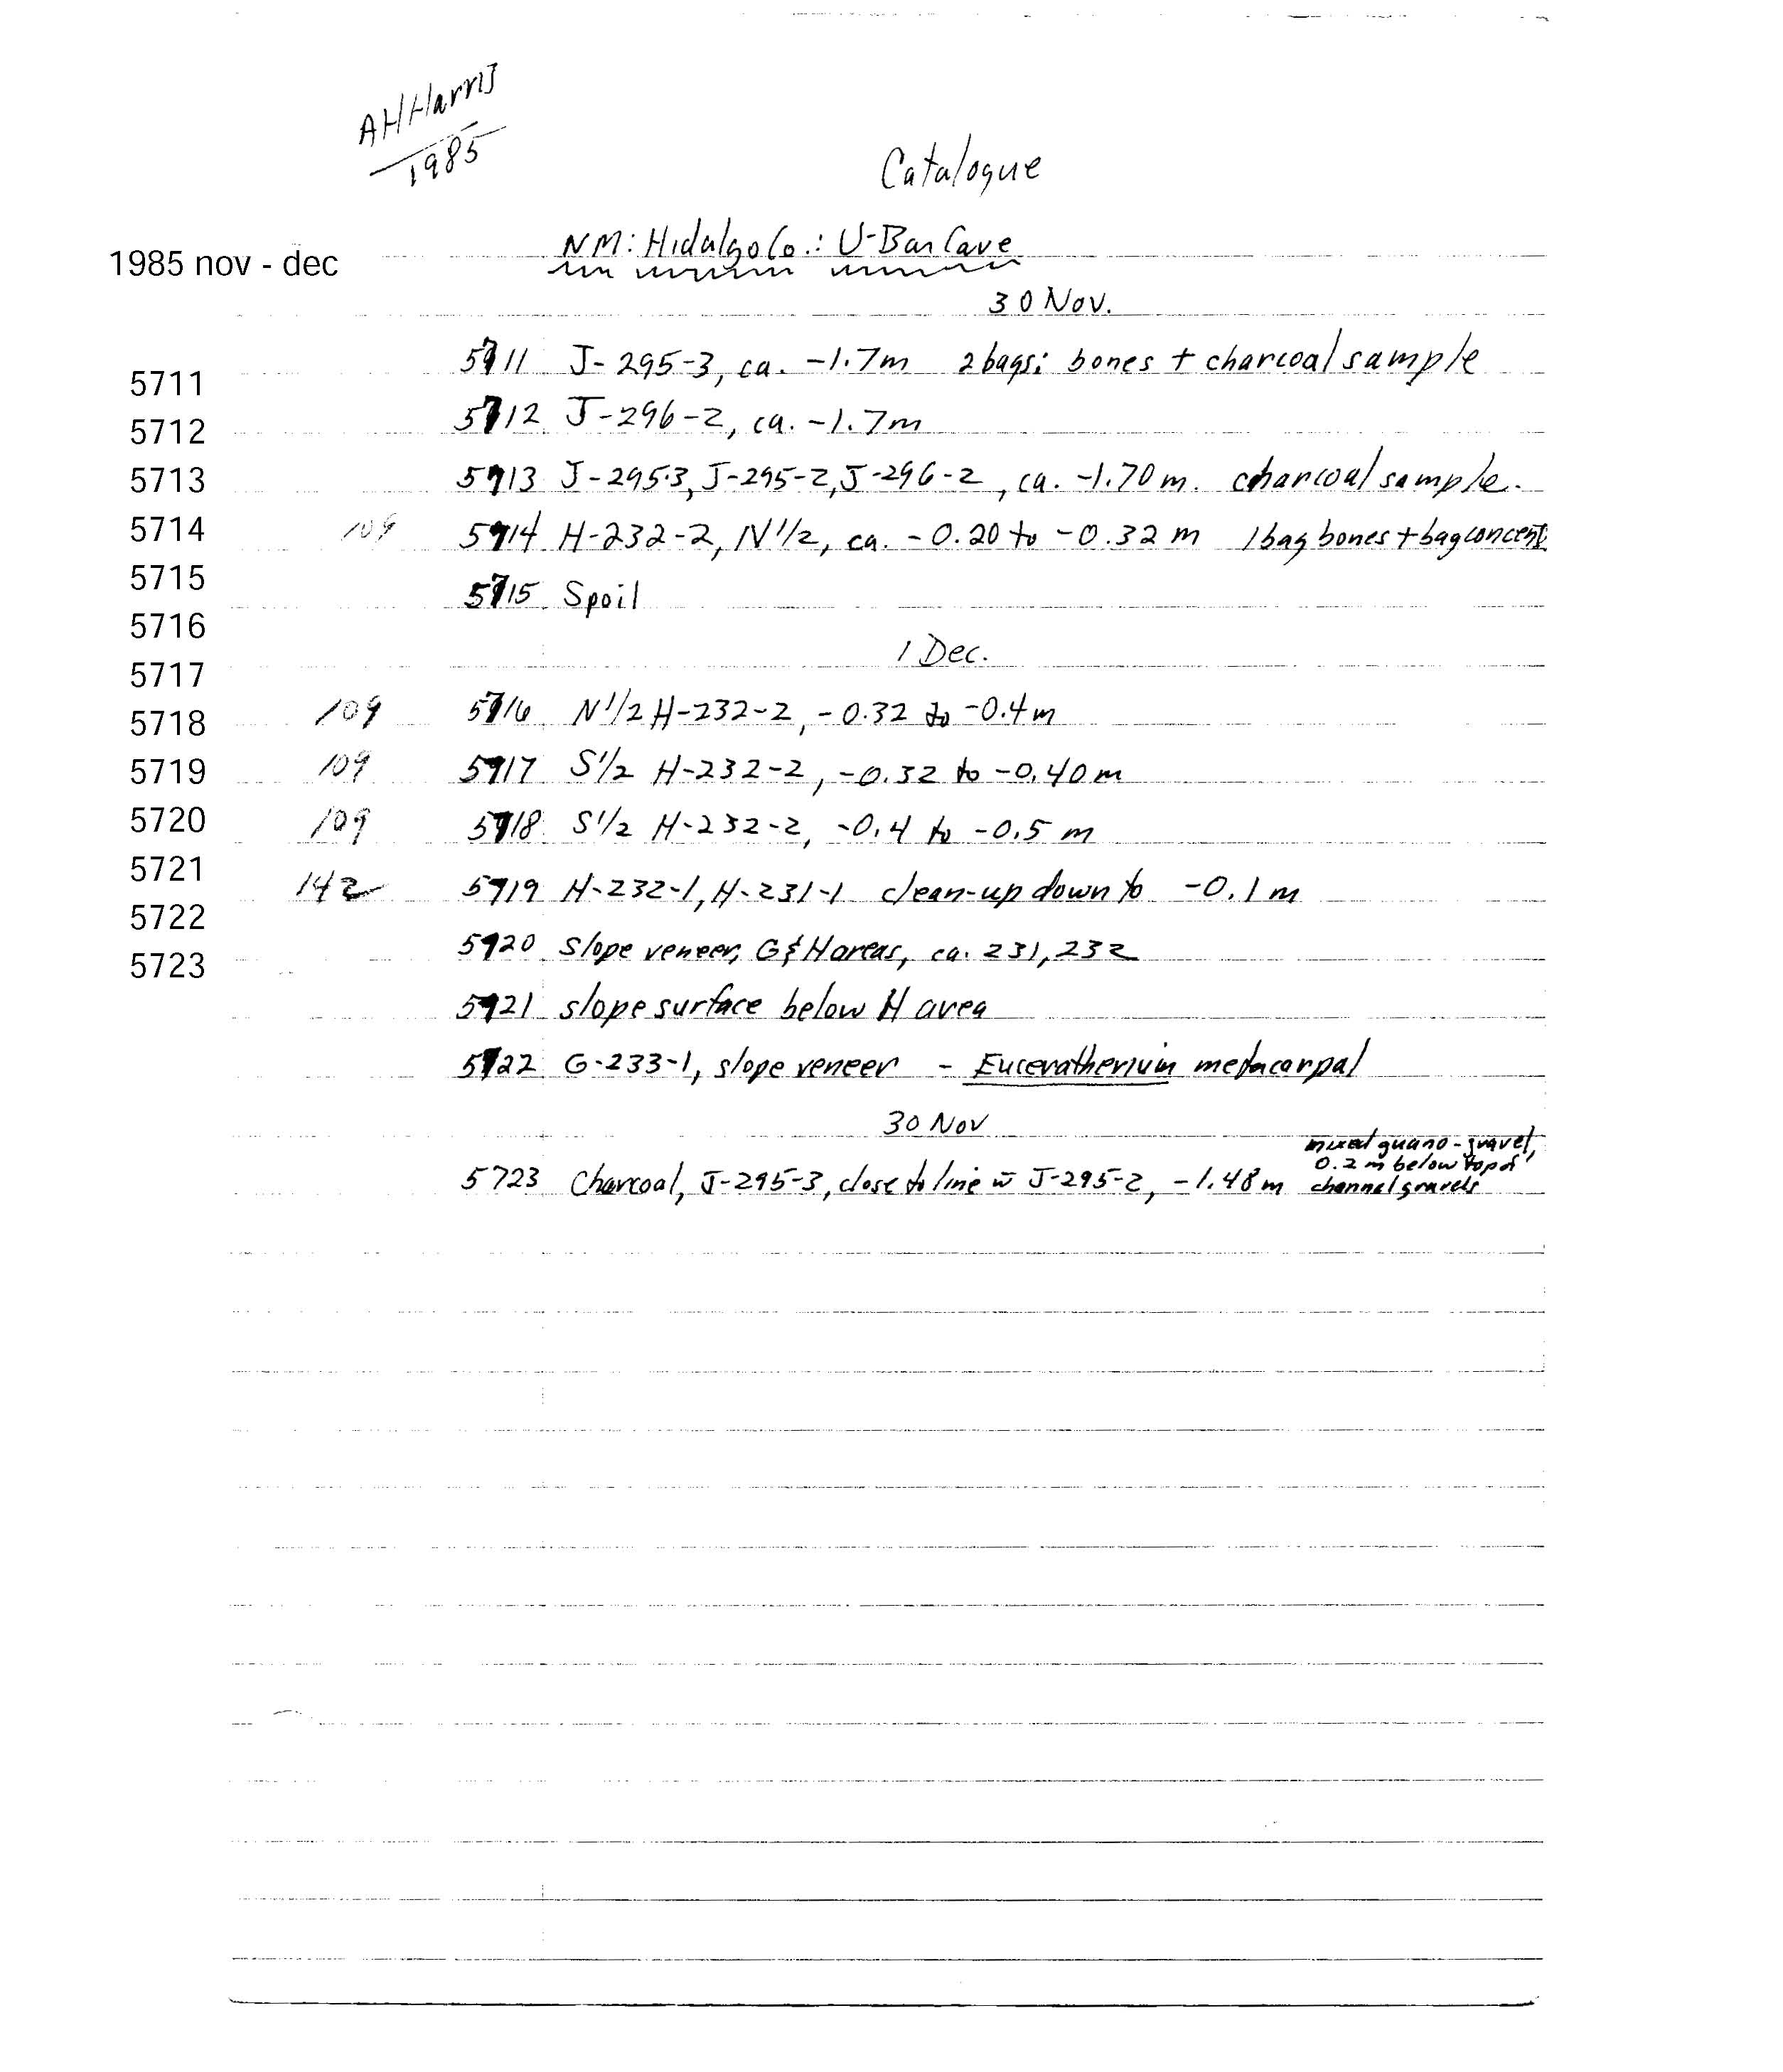 AHHarris
1985
Catalogue
1985 nov - dec
NM: Hidalgo Co.: U-Bar Cave
30 Nov.
5711
5712
5713
5714
5715
5716
5717
5718
5719
5720
5721
5722
5723
5711 J-295-3, ca. -1.7m 2 bags: bones + charcoal sample
5712 J-296-2, ca. -1.7m
5713 J-295-3, J-295-2, J-296-2, ca. -1.70 m. charcoal sample.
109 5714 H-232-2, N1/2, ca. -0.20 to -0.32 m 1 bag bones + bag concent.
5715 Spoil
1 Dec.
109 5716 N1/2 H-232-2, -0.32 to -0.4m
109 5717 S1/2 H-232-2, -0.32 to -0.40m
109 5718 S1/2 H-232-2, -0.4 to -0.5 m
142 5719 H-232-1, H-231-1 clean-up down to -0.1 m
5720 Slope veneer, G & H areas, ca. 231, 232
5721 slope surface below H area
5722 G-233-1, slope veneer - Euceratherium metacarpal
30 Nov
5723 Charcoal, J-295-3, close to line w̄ J-295-2, -1.48 m
mixed guano-gravel,
0.2 m below top of
channel gravels